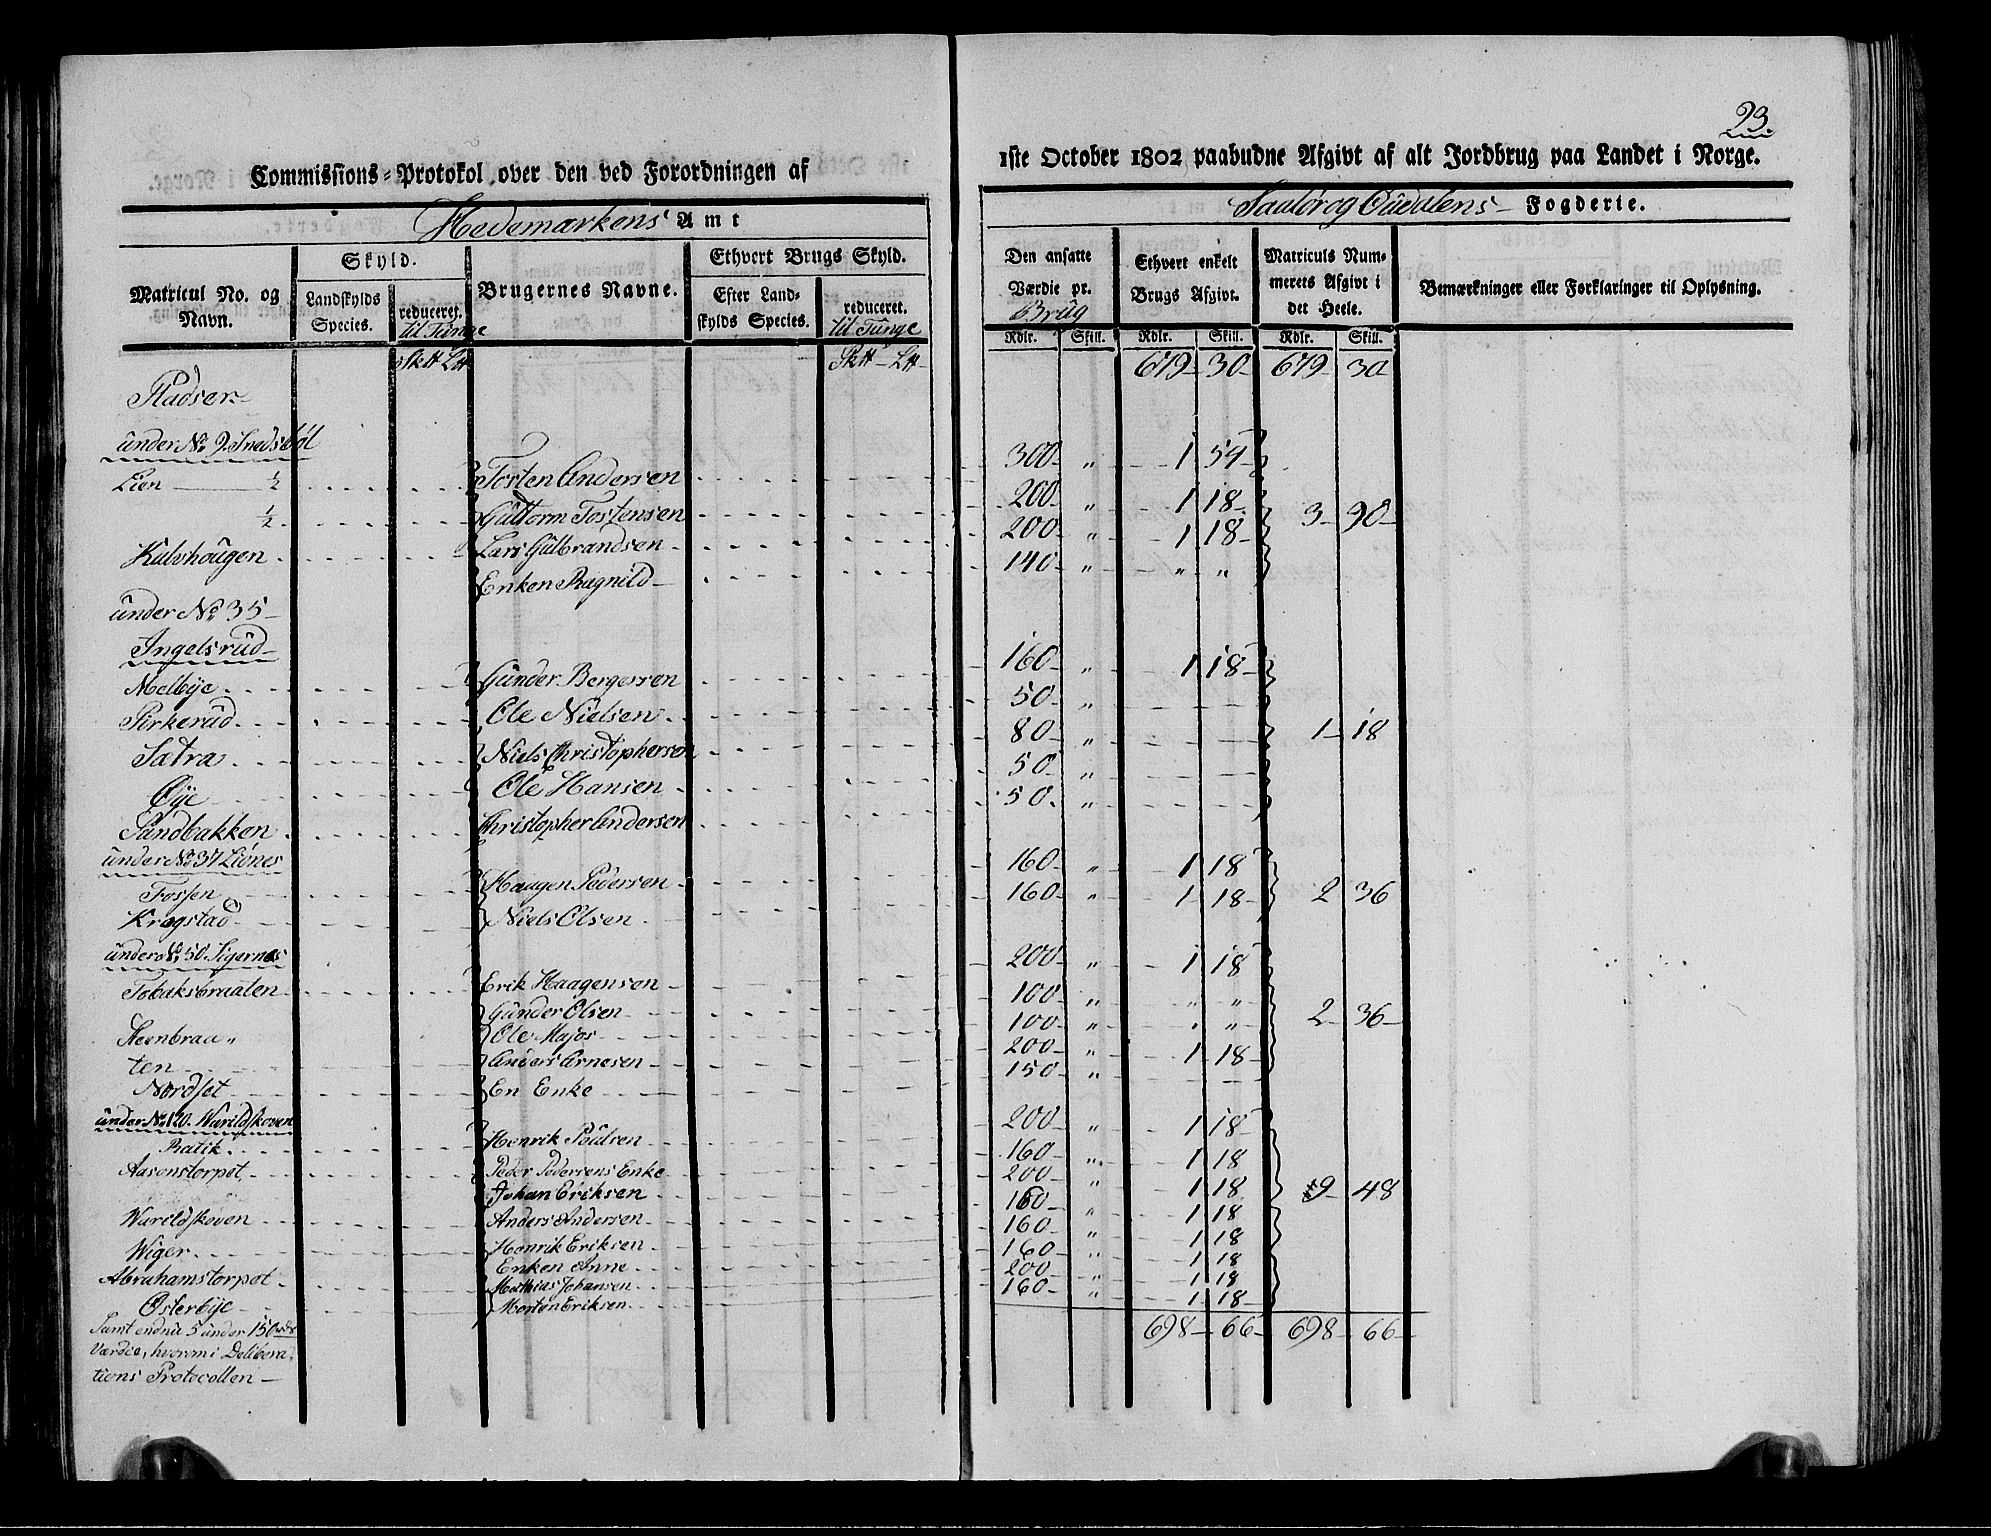 23.
Commissions-Protokol over den ved Forordningen af 1ste October 1802 paabudne Afgivt af alt Jordbrug paa Landet i Norge.
Hedemarkens Amt Saulør og Oudalens Fogderie.
Matricul No. og Navn. | Skyld. | Brugernes Navne. | Ethvert Brugs Skyld. | Den ansatte Værdie pr. Brug | Ethvert enkelt Brugs Afgivt. | Matriculs Nummerets Afgivt i det Heele. | Bemærkninger eller Forklaringer til Oplysning.
Landskylds Species. | reduceret. til Tunge | Efter Landskylds Species. | reduceret. til Tunge | Rdlr. | Skill. | Rdlr. | Skill. | Rdlr. | Skill.
Sk℔ L℔ | Sk℔ - L℔ | 679 - 30 - | 679 - 30
Pladser
under No 9. Snedsbøl
Lien ½ Tosten Andersen 300 „ 1 54
½ Guttorm Tostensen 200 „ 1 18 3 - 90
Kulvhougen Lars Gulbrandsen 200 „ 1 18
Enken Ragnild 140 „ „ „
under No 35
Ingelsrud
Melbye Gunder Bergersen 160 „ 1 18
Pirkerud Ole Nielsen 50 „
Sætra Niels Christophersen 80 „ 1 - 18
Øye Ole Hansen 50 „
Sandbakken Christopher Andersen 50 „
under No 37 Liønes
Fossen Haagen Pedersen 160 „ 1 18
Krogstad Niels Olsen 160 „ 1 18 2 36
under No 50. Sigernes
Tobaksbraaten Erik Haagensen 200 „ 1 18
Gunder Olsen 100 „ „ „
Steenbraa„ Ole Majos 100 „ „ „ 2 - 36
ten Anders Arnesen 200 „ 1 18
Nordset En Enke 150 „
under No 120. Warildskoven
Ratik Henrik Poulsen 200 „ 1 18
Aasenstorpet Peder Pedersens Enke 160 „ 1 18
Johan Eriksen 200 „ 1 18 9 - 48
Warildskoven Anders Andersen 160 „ 1 18
Wiger Henrik Eriksen 160 „ 1 18
Enken Anne 160 „ 1 18
Abrahamstorpet Mathias Johansen 200 „ 1 18
Østerbye Morten Eriksen 160 „ 1 18
Samt endnu 5 under 150 rdr 698 - 66 698 - 66
Værdie, hvorom i Delibera„
tions Protocollen